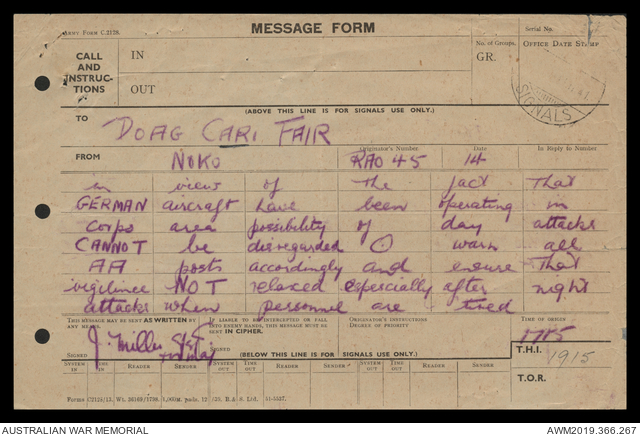 ARMY FORM C.2128. MESSAGE FORM Serial No.
CALL AND INSTRUCTIONS IN No. of Groups. OFFICE DATE STAMP
GR.
OUT
SIGNALS
(ABOVE THIS LINE IS FOR SIGNALS USE ONLY.)
TO DOAG CARI FAIR
FROM Originator's Number Date In Reply to Number
NOKO RAO 45 14
in view of the fact that
GERMAN aircraft have been operating in
corps area possibility of day attacks
CANNOT be disregarded warn all
AA posts accordingly and ensure that
vigilence NOT relaxed especially after night
attacks when personnel are tired
THIS MESSAGE MAY BE SENT AS WRITTEN BY ANY MEANS. IF LIABLE TO BE INTERCEPTED OR FALL INTO ENEMY HANDS, THIS MESSAGE MUST BE SENT IN CIPHER. ORIGINATOR'S INSTRUCTIONS DEGREE OF PRIORITY TIME OF ORIGIN
1715
SIGNED J. Miller SIGNED
(BELOW THIS LINE IS FOR SIGNALS USE ONLY.)
T.H.I. 1915
SYSTEM IN TIME IN READER SENDER SYSTEM OUT TIME OUT READER SENDER SYSTEM OUT TIME OUT READER SENDER
T.O.R.
AUSTRALIAN WAR MEMORIAL AWM2019.366.267